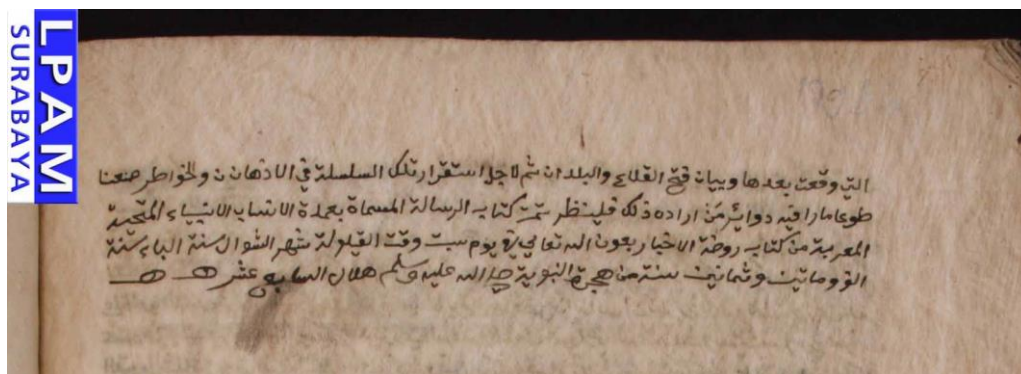 LPAM
SURABAYA
التي وقعت بعدها وبيان فتح القلاع والبلدان ثم لاجل استقرار تلك السلسلة في الاذهان والخواطر صنعنا
فيه دوائر من اراده ذلك فلينظر تمت كتاب الرسالة المسماة بعمدة الانساب الانبياء
من كتاب روضة الاخيار بعون الله تعالى في يوم سبت وقت القيلولة شهر الشوال سنة الباء سنة
الف ومائتين وثمانين سنة من هجرة النبوية صلى الله عليه وسلم هلال السابع عشر